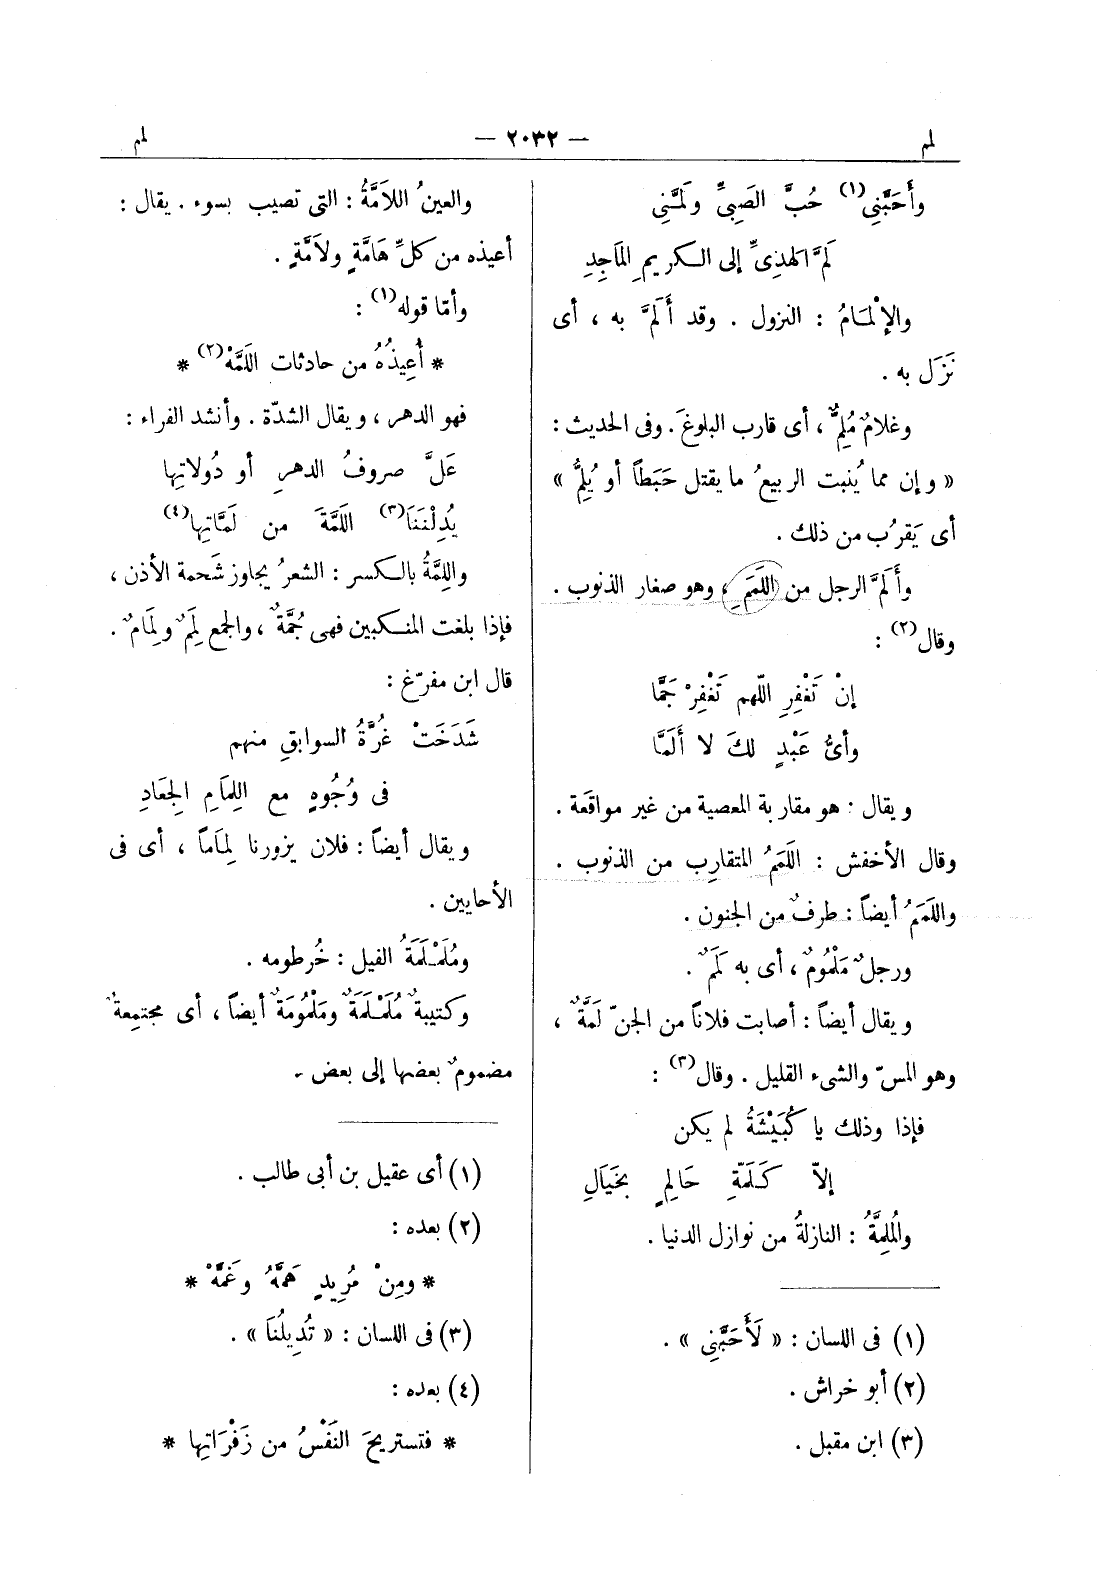 لمم
— ٢٠٣٢ —
لمم
وأَحَبَّنِي(١) حُبَّ الصَبِيِّ ولَمَّنِي
لَمَّ الهَدِىِّ إلى الكريمِ المَاجِدِ
والإلْمَامُ : النزول . وقد أَلَمَّ به ، أى
نَزَل به .
وغلامٌ مُلِمٌّ ، أى قارب البلوغَ . وفى الحديث :
« وإن مما يُنبت الربيعُ ما يقتل حَبَطاً أو يُلِمُّ »
أى يَقرُب من ذلك .
وأَلَمَّ الرجل من اللَمَمِ ، وهو صغار الذنوب .
وقال(٢) :
إنْ تَغْفِرِ اللّهم تَغْفِرْ جَمَّا
وأىُّ عَبْدٍ لكَ لا أَلَمَّا
ويقال : هو مقاربة المعصية من غير مواقَعة .
وقال الأخفش : اللَمَمُ المتقارِب من الذنوب .
واللَمَمُ أيضاً : طرفٌ من الجنون .
ورجلٌ مَلْمُومٌ ، أى به لَمَمٌ .
ويقال أيضاً : أصابت فلاناً من الجنّ لَمَّةٌ ،
وهو المسّ والشىء القليل . وقال(٣) :
فإذا وذلك يا كُبَيْشَةُ لم يكن
إلاّ كَلَمَّةِ حَالِمٍ بخَيَالِ
والمُلِمَّةُ : النازلةُ من نوازل الدنيا .
(١) فى اللسان : « لَأَحَبَّنِي » .
(٢) أبو خراش .
(٣) ابن مقبل .
والعينُ اللاَمَّةُ : التى تصيب بسوء . يقال :
أعيذه من كلِّ هَامَّةٍ ولاَمَّةٍ .
وأمّا قوله(١) :
* أُعِيذُهُ من حادثات اللَمَّهْ(٢) *
فهو الدهر ، ويقال الشدّة . وأنشد الفراء :
عَلَّ صروفُ الدهرِ أو دُولاتِها
يُدِلْنَنَا(٣) اللَمَّةَ من لَمَّاتِها(٤)
واللِمَّةُ بالكسر : الشعرُ يجاوز شَحمة الأذن ،
فإذا بلغت المنكبين فهى جُمَّةٌ ، والجمع لِمَمٌ ولِمَامٌ .
قال ابن مفرّغ :
شَدَخَتْ غُرَّةُ السوابقِ منهم
فى وُجُوهٍ مع اللِمَامِ الجِعَادِ
ويقال أيضاً : فلان يزورنا لِمَاماً ، أى فى
الأحايين .
ومُلَمْلَمَةُ الفيل : خُرطومه .
وكتيبةٌ مُلَمْلَمَةٌ ومَلْمُومَةٌ أيضاً ، أى مجتمِعةٌ
مضمومٌ بعضها إلى بعض .
(١) أى عقيل بن أبى طالب .
(٢) بعده :
* ومِنْ مُرِيدٍ هَمَّهُ وغَمَّهْ *
(٣) فى اللسان : « تُدِيلُنَا » .
(٤) بعده :
* فتستريحَ النَفْسُ من زَفْرَاتِها *